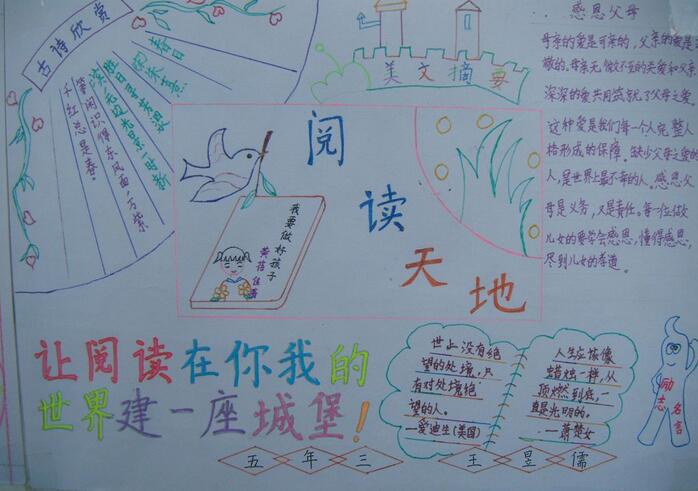 古诗欣赏
春日
宋 朱熹
胜日寻芳泗水滨
无边光景一时新
等闲识得东风面，万紫
千红总是春。
美文摘要
感恩父母
母亲的爱是可亲的，父亲的爱是可
敬的。母亲无微不至的关爱和父亲
深深的爱共同筑就了父母之爱
这种爱是我们每一个人完整人
格形成的保障。缺少父母之爱的
人，是世界上最不幸的人。感恩父
母是义务，又是责任。每一位做
儿女的要学会感恩，懂得感恩，
尽到儿女的孝道。
阅读天地
我要做好孩子
让阅读在你我的
世界建一座城堡！
世上没有绝
望的处境，只
有对处境绝
望的人。
—爱迪生(美国)
人生应该像
蜡烛一样，从
顶燃到底，一
直是光明的。
——萧楚女
励志
名言
五年三
王昱儒